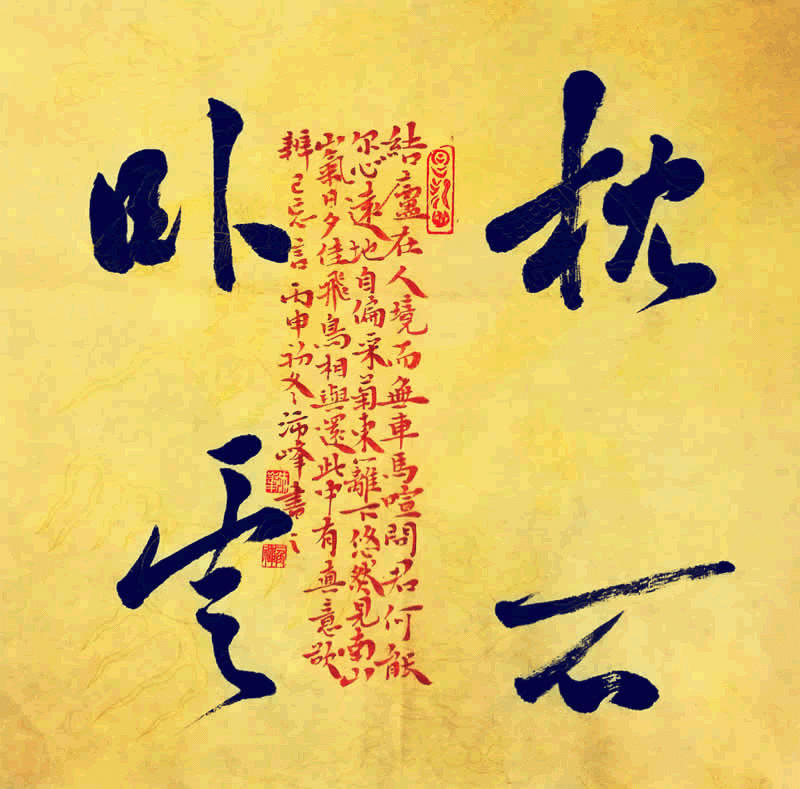 枕石
結廬在人境而無車馬喧問君何能
尔心遠地自偏采菊東籬下悠然見南山
山氣日夕佳飛鳥相與還此中有真意欲
辨已忘言丙申初冬沛峰書之
卧云